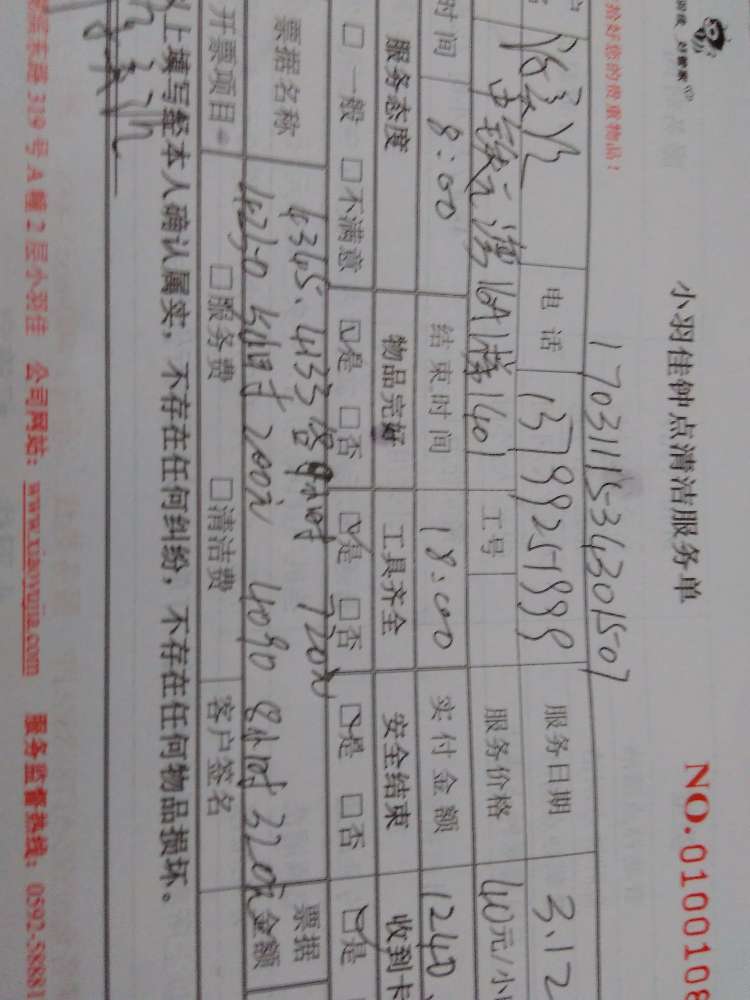 小羽佳钟点清洁服务单
NO.0100108
拾好您的贵重物品！
17031115-34301507
电话 13799251999 服务日期 3.12
中铁元湾16A栋1401 工号 服务价格 40元/小
时间 8:00 结束时间 18:00 实付金额 1240
服务态度 物品完好 工具齐全 安全结束 收到卡
□ 一般 □不满意 ☑是 □否 ☑是 □否 ☑是 □否 ☑是
票据名称 4345.4133各9小时 720元 票据
4230 5小时 200元 4090 8小时 320元 金额
开票项目 □服务费 □清洁费 客户签名
以上填写经本人确认属实，不存在任何纠纷，不存在任何物品损坏。
东路319号A幢2层小羽佳 公司网站：www.xiaoyujia.com 服务监督热线：0592-58881